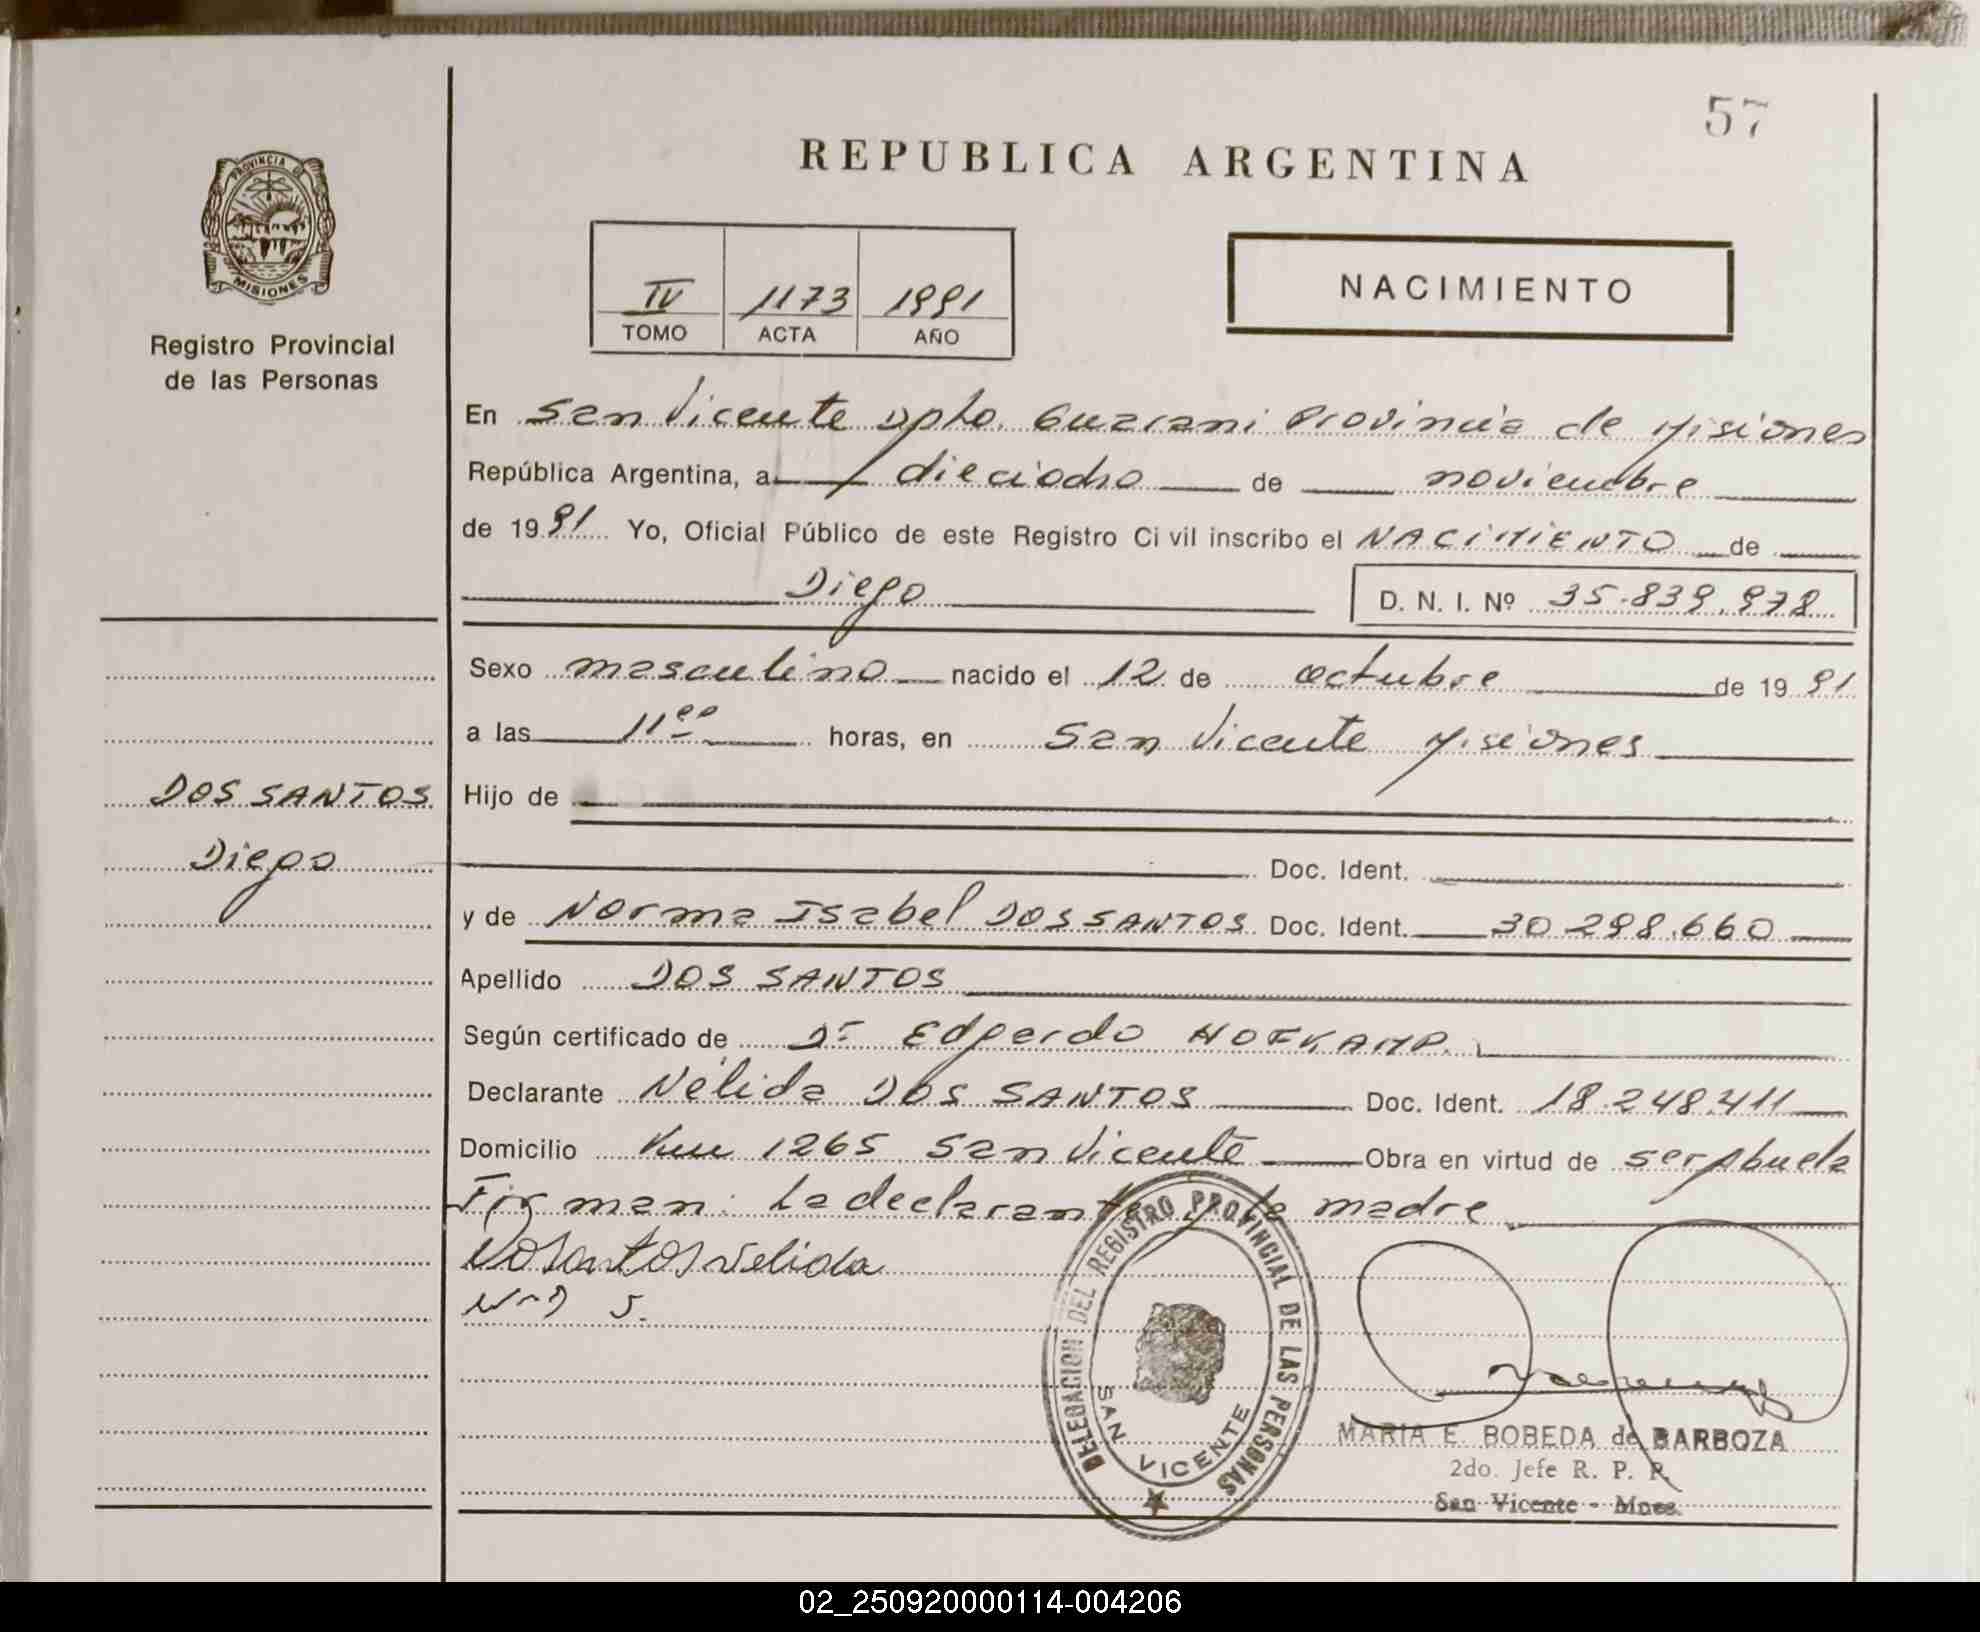 57
REPUBLICA ARGENTINA
PROVINCIA DE
MISIONES
Registro Provincial
de las Personas
IV 1173 1991
TOMO ACTA AÑO
NACIMIENTO
En San Vicente Dpto. Guarani Provincia de Misiones
República Argentina, a dieciocho de noviembre
de 1991 Yo, Oficial Público de este Registro Civil inscribo el NACIMIENTO de
Diego D. N. I. Nº 35.839.978
Sexo masculino nacido el 12 de octubre de 1991
a las 11ºº horas, en San Vicente Misiones
DOS SANTOS
Diego
Hijo de
Doc. Ident.
y de Norma Isabel DOS SANTOS Doc. Ident. 30.298.660
Apellido DOS SANTOS
Según certificado de Dr Edgardo HOFKAMP.
Declarante Nélida DOS SANTOS Doc. Ident. 18.248.411
Domicilio Km 1265 San Vicente Obra en virtud de ser Abuela
Firman: La declarante y la madre
Dosantos Nelida
DELEGACION DEL REGISTRO PROVINCIAL DE LAS PERSONAS
SAN VICENTE
MARIA E. BOBEDA de BARBOZA
2do. Jefe R. P. P.
San Vicente - Mnes.
02_250920000114-004206